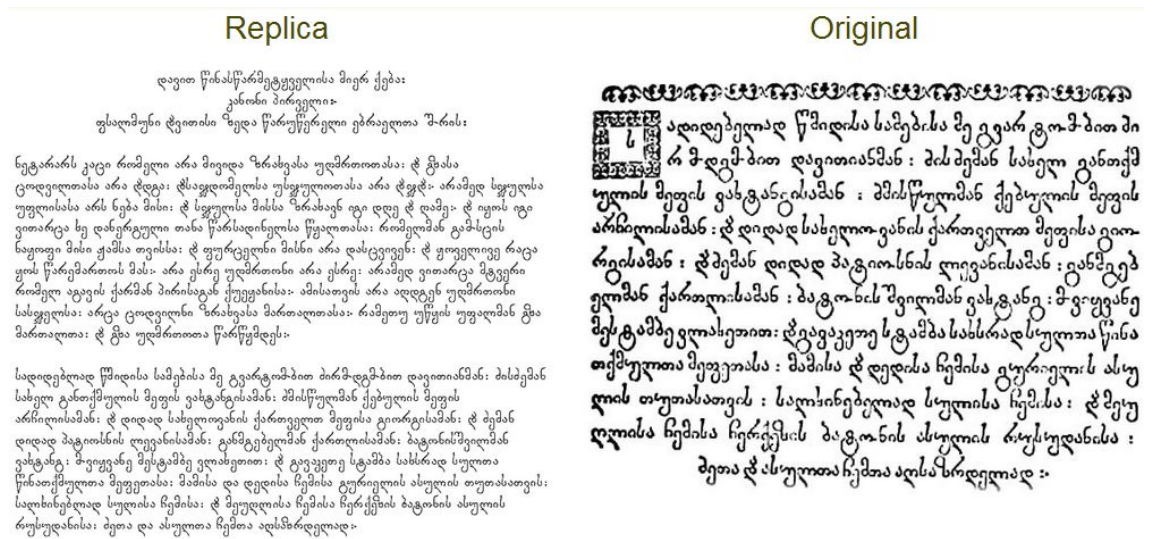 Replica
დავით წინასწარმეტყველისა მიერ ქება:
კანონი პირველი:-
ფსალმუნი დავითისი ზედა წარუწერელი ებრაელთა შ~რის:
ნეტარარს კაცი რომელი არა მივიდა ზრახვასა უღმრთოთასა: და გზასა
ცოდვილთასა არა დადგა: და საჯდომელსა უსჯულოთასა არა დაჯდა: არამედ სჯულსა
უფლისასა არს ნება მისი: და სჯულსა მისსა ზრახავნ იგი დღე და ღამე:- და იყოს იგი
ვითარცა ხე დანერგული თანა წარსადინელსა წყალთასა: რომელმან გამ~სცის
ნაყოფი მისი ჟამსა თვისსა: და ფურცელნი მისნი არა დასცვივენ: და ყოველივე რაცა
ყოს წარემართოს მას:- არა ესრე უღმრთონი არა ესრე: არამედ ვითარცა მტვერი
რომელ აგავის ქარმან პირისაგან ქუეყანისა:- ამისათვის არა აღდგენ უღმრთონი
სასჯელსა: არცა ცოდვილნი ზრახვასა მართალთასა:- რამეთუ უწყის უფალმან გზა
მართალთა: და გზა უღმრთოთა წარწყმდეს:-
სადიდებლად წმიდისა სამებისა მე გვარტომ~ბით ძირმ~დგმ~ბით დავითიანმან: ძისძემან
სახელ განთქმულის მეფის ვახტანგისამან: ძმისწულმან ქებულის მეფის
არჩილისამან: და დიდად სახელოვანის ქართველთ მეფისა გიორგისამან: და ძემან
დიდად პატიოსნის ლევანისამან: განმგებელმან ქართლისამან: ბატონისშვილმან
ვახტანგ: მ~ვიყვანე მესტამბე ვლახეთით: და გავაკეთე სტამბა სახსრად სულთა
წინათქმულთა მეფეთასა: მამისა და დედისა ჩემისა გურიელის ასულის თუთასათვის:
სალხინებლად სულისა ჩემისა: და მეუღლისა ჩემისა ჩერქეზის ბატონის ასულის
რუსუდანისა: ძეთა და ასულთა ჩემთა აღსაზრდელად:-
Original
სადიდებელად წმიდისა სამებისა მე გვარტომ~ბით ძი
რმ~დგმ~ბით დავითიანმან: ძისძემან სახელ განთქმ
ულის მეფის ვახტანგისამან: ძმისწულმან ქებულის მეფის
არჩილისამან: და დიდად სახელოვანის ქართველთ მეფისა გიო
რგისამან: და ძემან დიდად პატიოსნის ლევანისამან: განმგებ
ელმან ქართლისამან: ბატონის შვილმან ვახტანგ: მ~ვიყვანე
მესტამბე ვლახეთით: და გავაკეთე სტამბა სახსრად სულთა წინა
თქმულთა მეფეთასა: მამისა და დედისა ჩემისა გურიელის ასუ
ლის თუთასათვის: სალხინებელად სულისა ჩემისა: და მეუ
ღლისა ჩემისა ჩერქეზის ბატონის ასულის რუსუდანისა:
ძეთა და ასულთა ჩემთა აღსაზრდელად:-